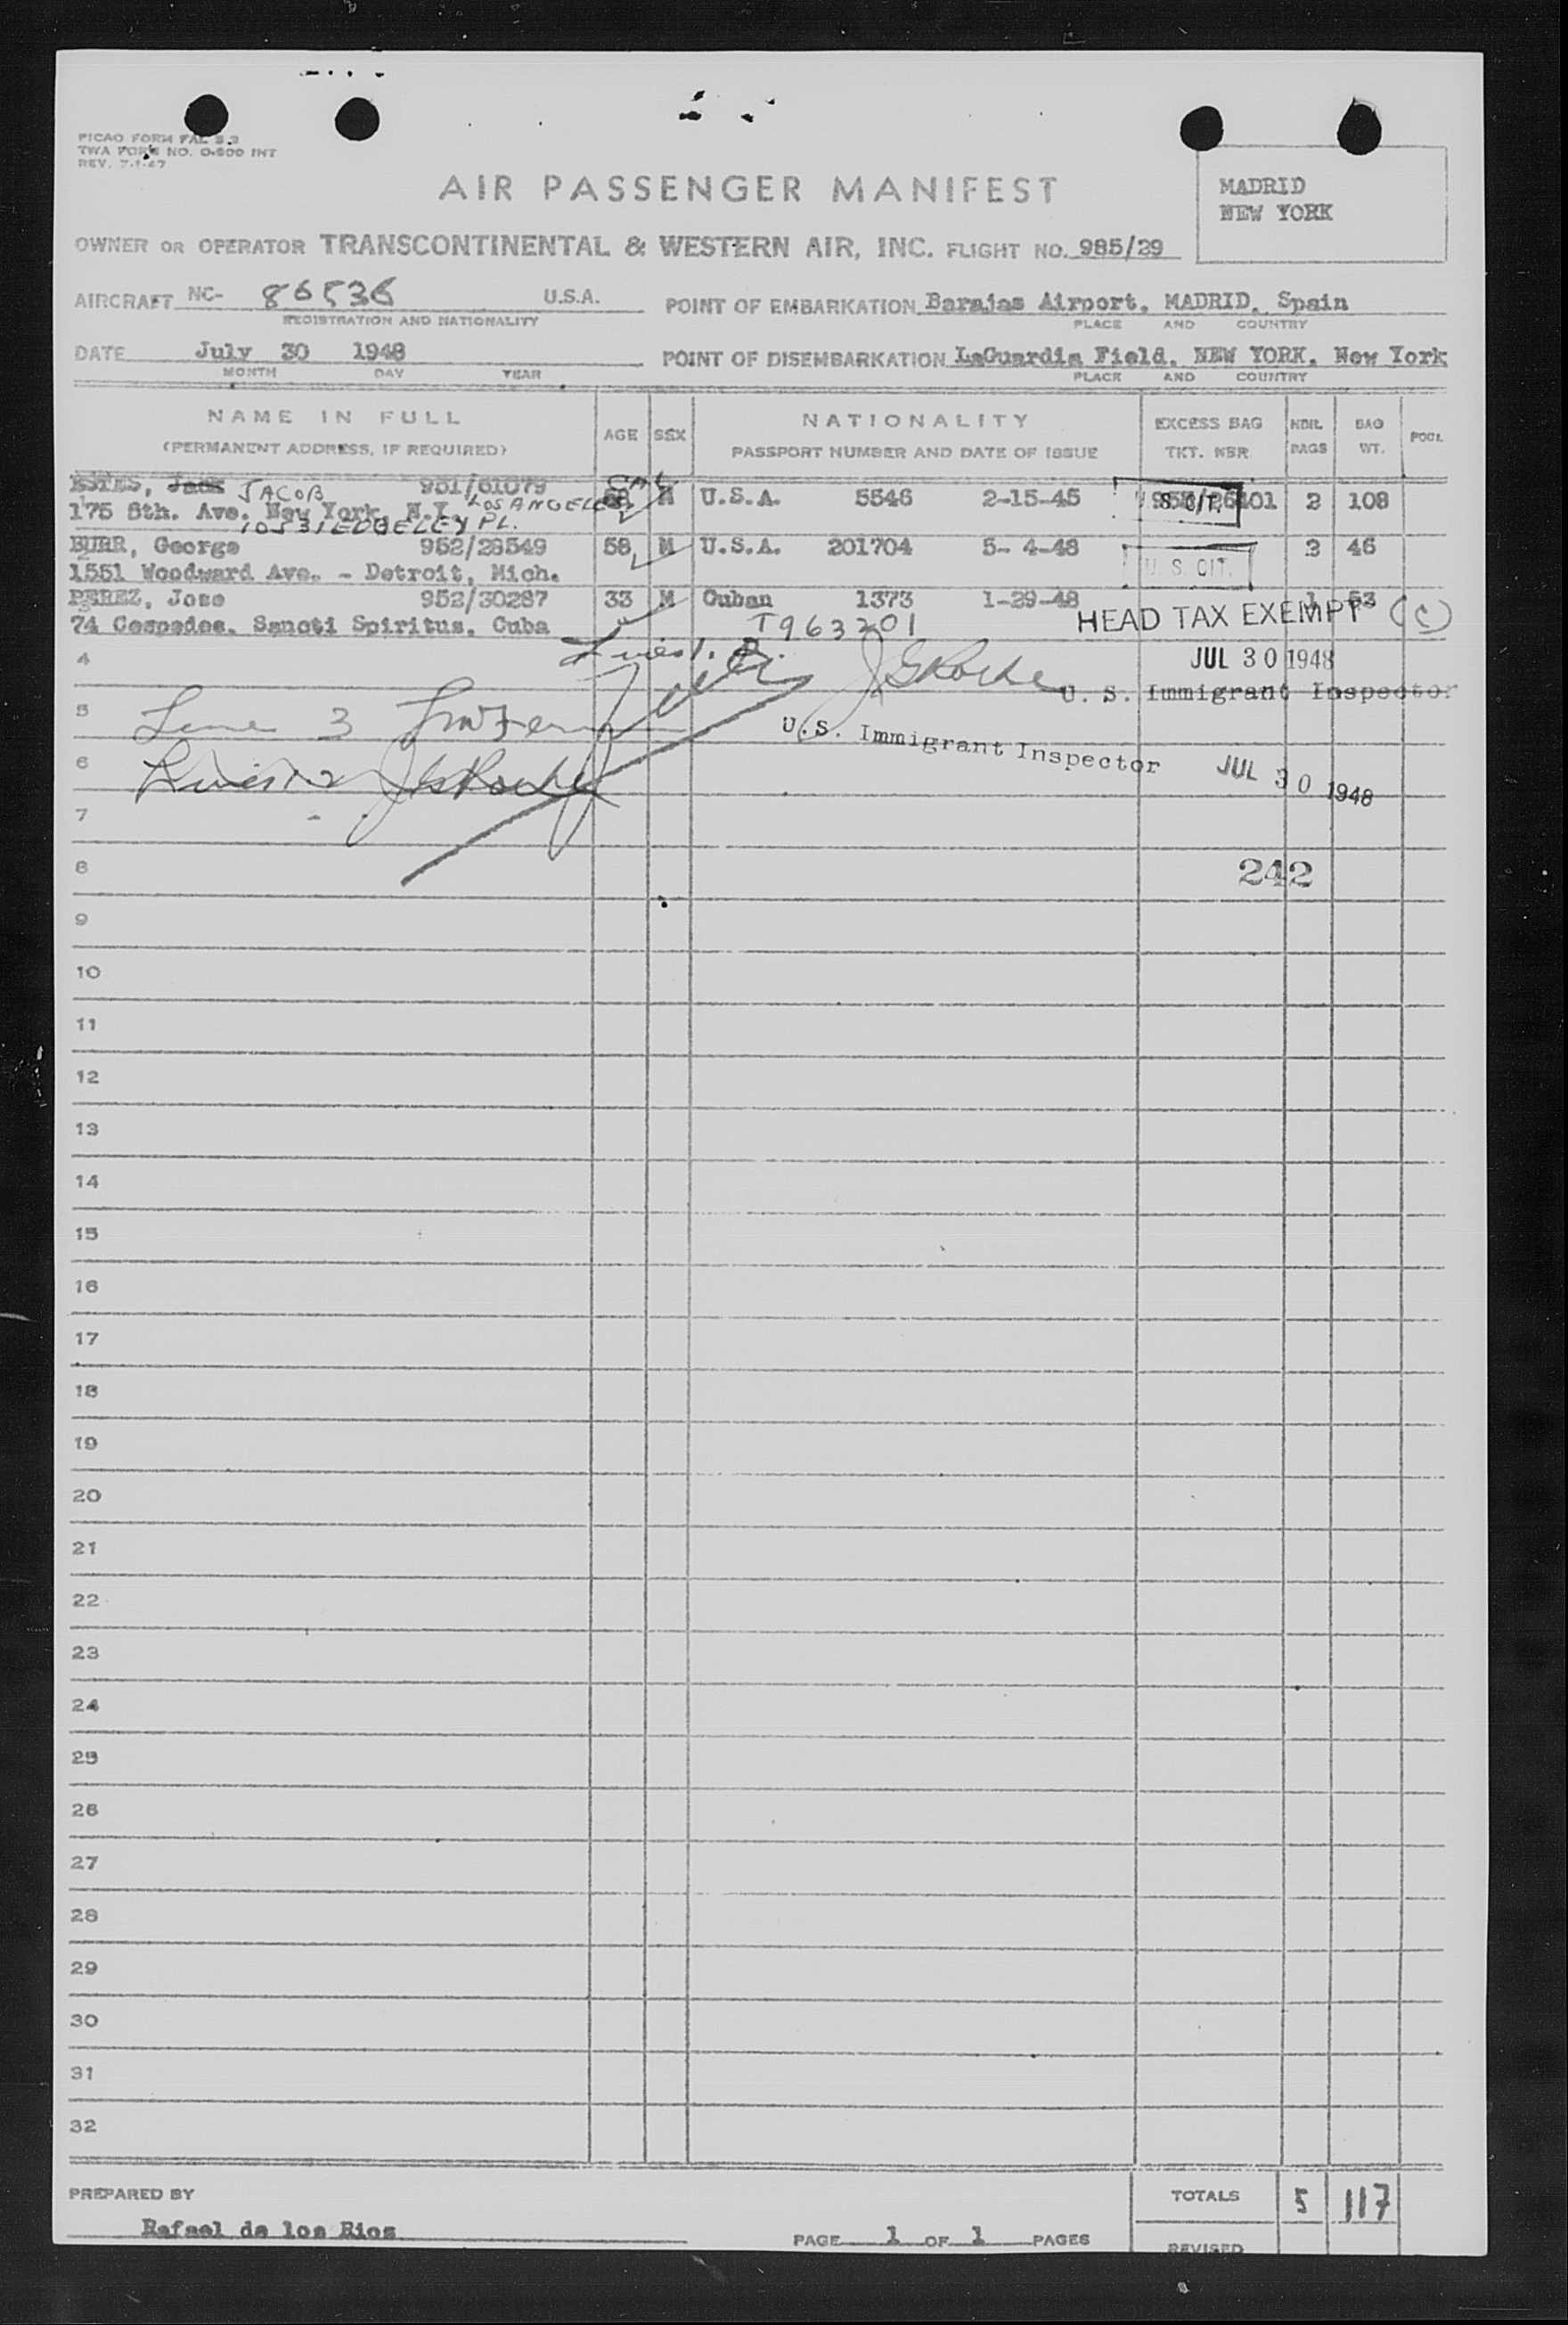 PICAO FORM FAL 3.3
TWA FORM NO. O-800 INT
REV. 7-1-47
AIR PASSENGER MANIFEST
MADRID
NEW YORK
OWNER OR OPERATOR TRANSCONTINENTAL & WESTERN AIR, INC. FLIGHT NO. 985/29
AIRCRAFT NC- 86536 U.S.A. POINT OF EMBARKATION Barajas Airport, MADRID, Spain
REGISTRATION AND NATIONALITY PLACE AND COUNTRY
DATE July 30 1948 POINT OF DISEMBARKATION LaGuardia Field, NEW YORK, New York
MONTH DAY YEAR PLACE AND COUNTRY
NAME IN FULL AGE SEX NATIONALITY EXCESS BAG NBR. BAG POOL
(PERMANENT ADDRESS, IF REQUIRED) PASSPORT NUMBER AND DATE OF ISSUE TKT. NBR BAGS WT.
ESTES, Jack JACOB 951/61079 CAL M U.S.A. 5546 2-15-45 2 108
175 8th. Ave. New York, N.Y. LOS ANGELES
10531 EDGELEY PL.
BURR, George 952/28549 58 M U.S.A. 201704 5- 4-48 U. S. CIT. 46
1551 Woodward Ave. - Detroit, Mich.
PEREZ, Jose 952/30287 33 M Cuban 1373 1-29-48 1 53
74 Cespedes. Sancti Spiritus, Cuba T963201 HEAD TAX EXEMPT (C)
4 JUL 30 1948
U. S. Immigrant Inspector
5 Line 3
U.S. Immigrant Inspector
6 JUL 30 1948
7
8 242
9
10
11
12
13
14
15
16
17
18
19
20
21
22
23
24
25
26
27
28
29
30
31
32
PREPARED BY TOTALS 5 117
Rafael de los Rios
PAGE 1 OF 1 PAGES REVISED